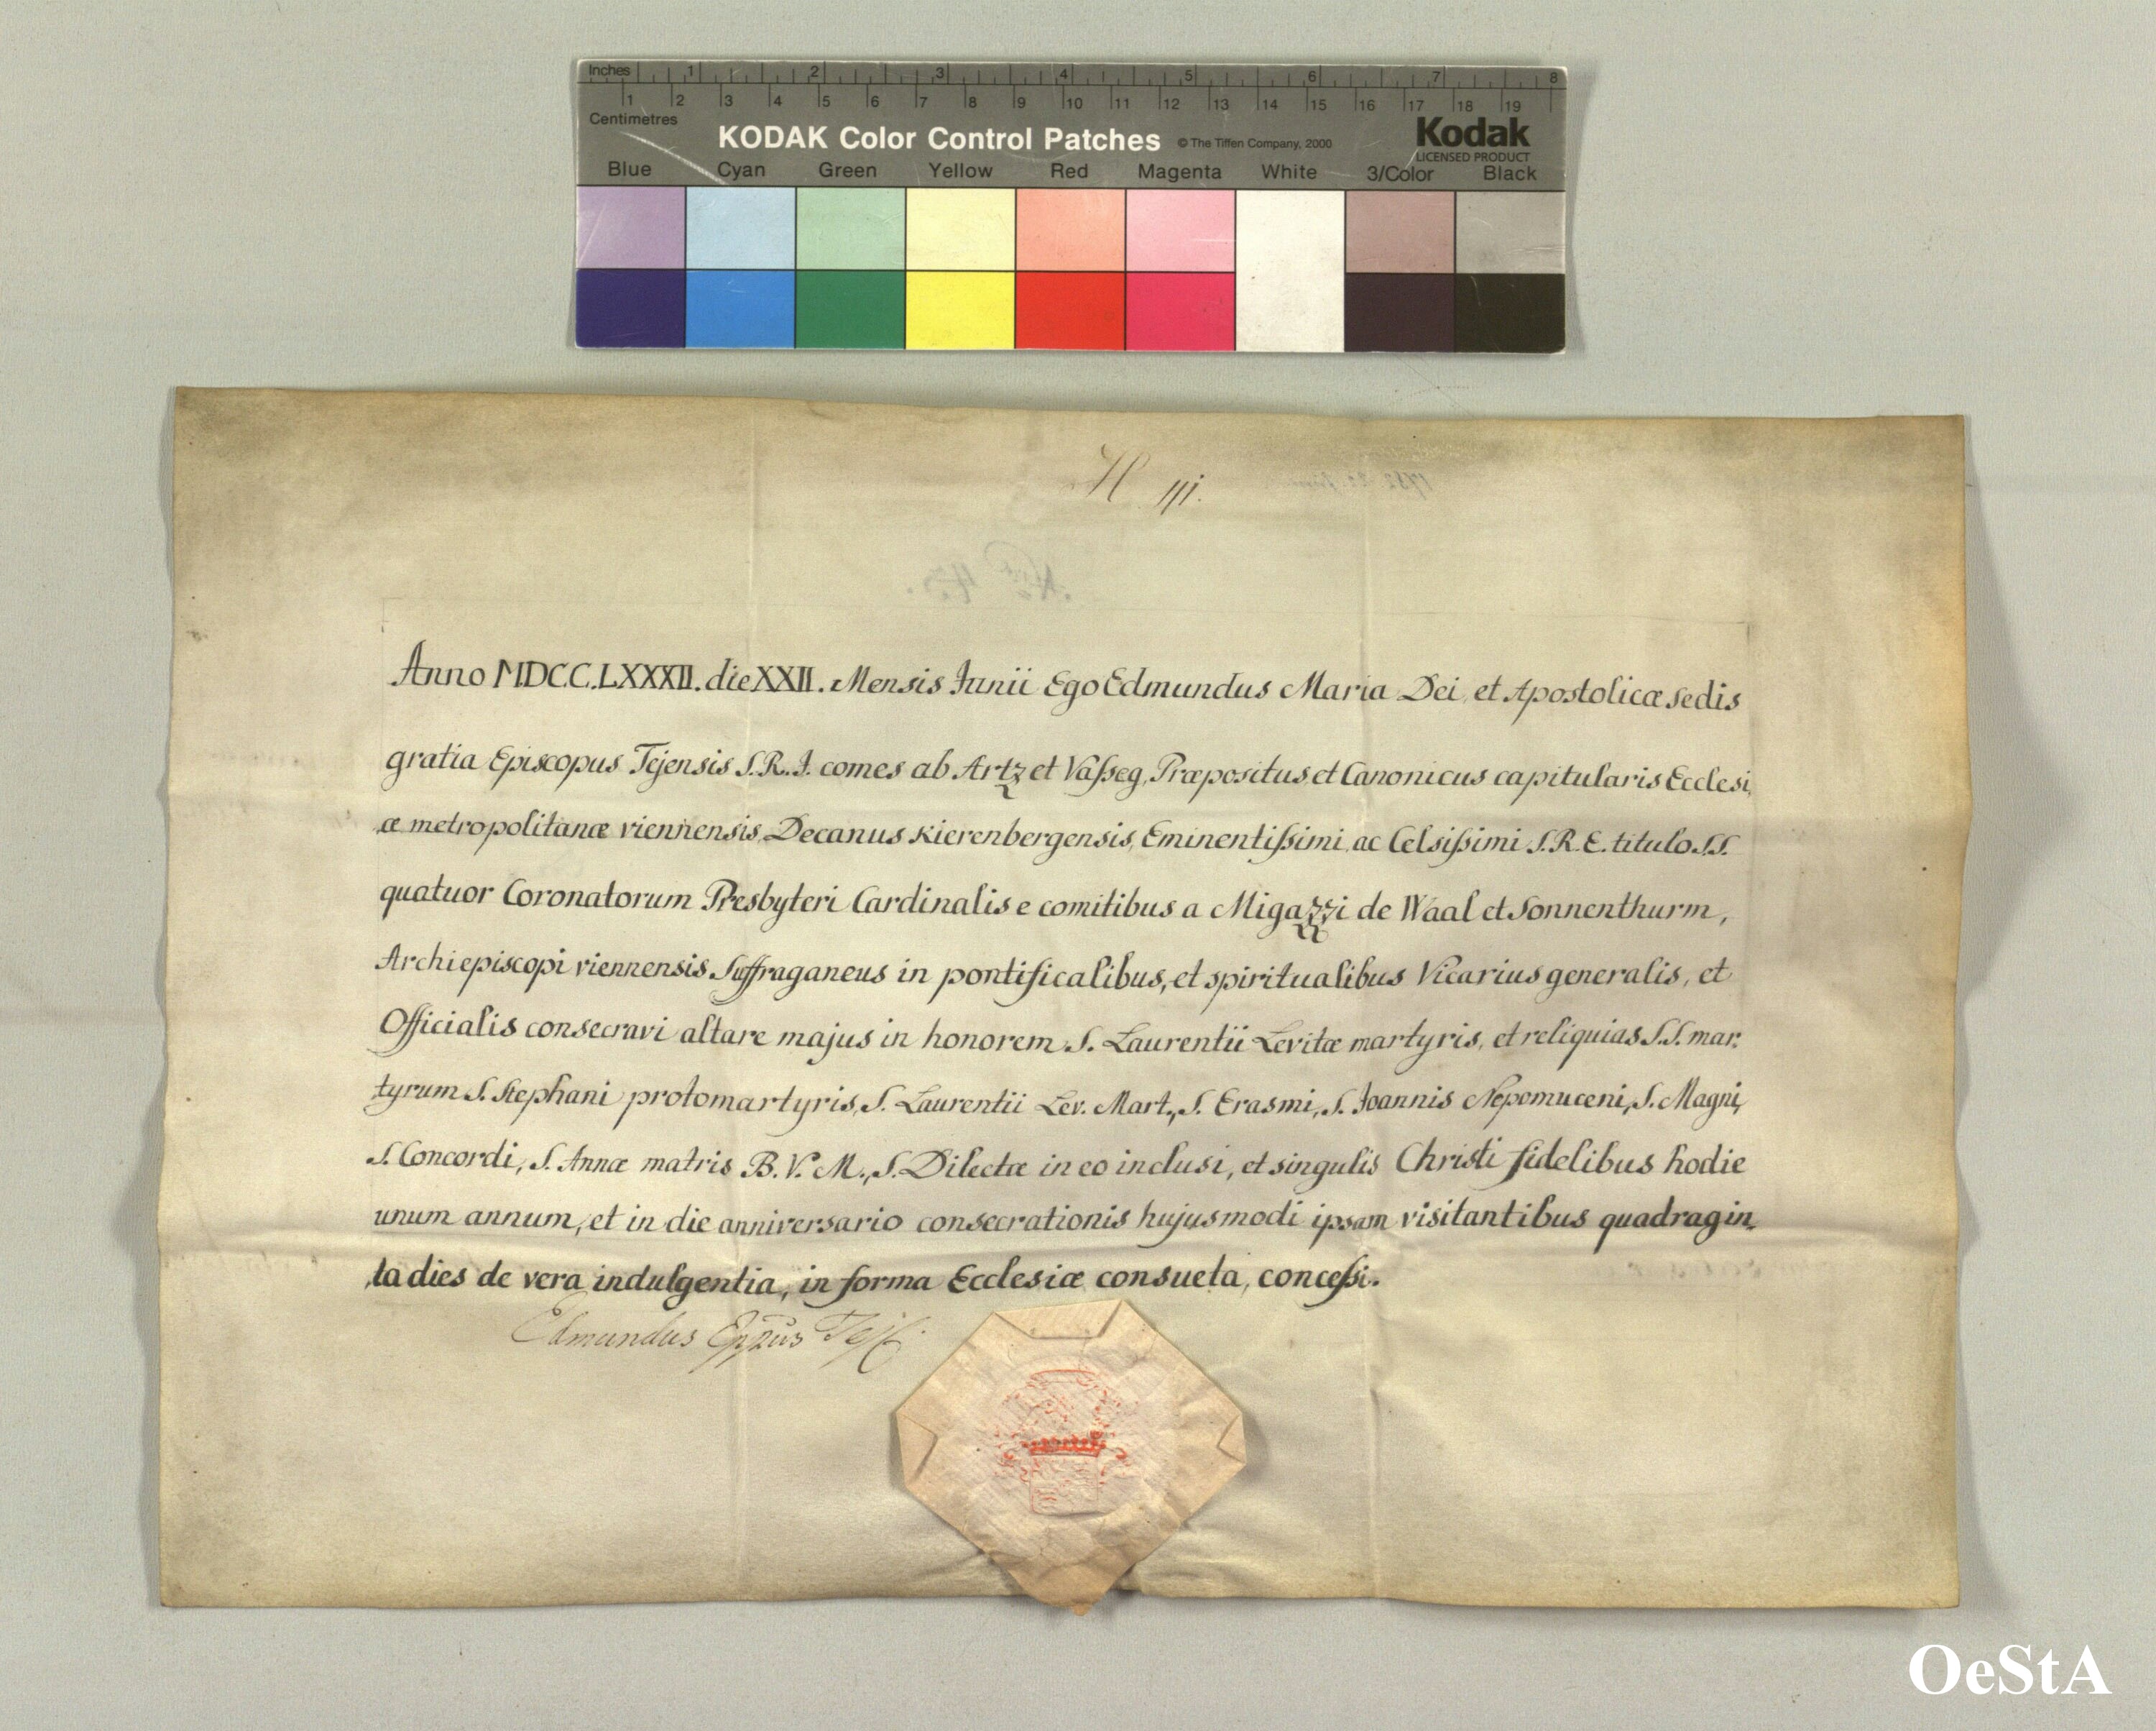 Inches 1 2 3 4 5 6 7 8
1 2 3 4 5 6 7 8 9 10 11 12 13 14 15 16 17 18 19
Centimetres
KODAK Color Control Patches © The Tiffen Company, 2000 Kodak
LICENSED PRODUCT
Blue Cyan Green Yellow Red Magenta White 3/Color Black
Anno MDCC.LXXXII. die XXII. Mensis Junii Ego Edmundus Maria Dei, et Apostolicæ sedis
gratia Episcopus Tejensis S.R.J. comes ab Artz et Vasseg, Præpositus, et Canonicus capitularis Ecclesi,
æ metropolitanæ viennensis, Decanus Kierenbergensis, Eminentissimi, ac Celsissimi S.R.E. titulo S.S.
quatuor Coronatorum Presbyteri Cardinalis e comitibus a Migazzi de Waal et Sonnenthurm,
Archiepiscopi viennensis Suffraganeus in pontificalibus, et spiritualibus Vicarius generalis, et
Officialis consecravi altare majus in honorem S. Laurentii Levitæ martyris, et reliquias S.S. mar:
tyrum S. Stephani protomartyris, S. Laurentii Lev. Mart., S. Erasmi, S. Joannis Nepomuceni, S. Magni,
S. Concordi, S. Annæ matris B.V.M., S. Dilectæ in eo inclusi, et singulis Christi fidelibus hodie
unum annum, et in die anniversario consecrationis hujusmodi ipsam visitantibus quadragin,
ta dies de vera indulgentia, in forma Ecclesiæ consueta, concessi.
Edmundus Eppus Tejs.
OeStA